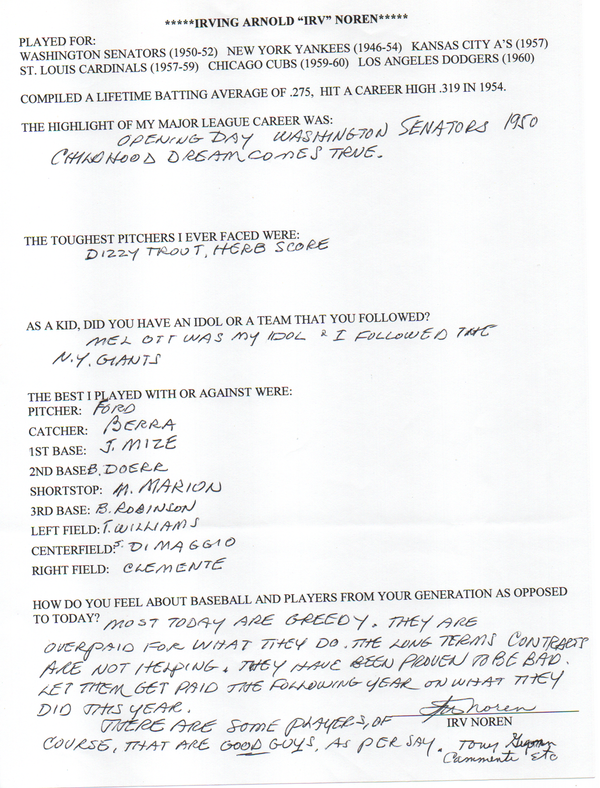 *****IRVING ARNOLD “IRV” NOREN*****
PLAYED FOR:
WASHINGTON SENATORS (1950-52) NEW YORK YANKEES (1946-54) KANSAS CITY A'S (1957)
ST. LOUIS CARDINALS (1957-59) CHICAGO CUBS (1959-60) LOS ANGELES DODGERS (1960)
COMPILED A LIFETIME BATTING AVERAGE OF .275, HIT A CAREER HIGH .319 IN 1954.
THE HIGHLIGHT OF MY MAJOR LEAGUE CAREER WAS:
OPENING DAY WASHINGTON SENATORS 1950
CHILDHOOD DREAM COMES TRUE.
THE TOUGHEST PITCHERS I EVER FACED WERE:
DIZZY TROUT, HERB SCORE
AS A KID, DID YOU HAVE AN IDOL OR A TEAM THAT YOU FOLLOWED?
MEL OTT WAS MY IDOL & I FOLLOWED THE
N.Y. GIANTS
THE BEST I PLAYED WITH OR AGAINST WERE:
PITCHER: FORD
CATCHER: BERRA
1ST BASE: J. MIZE
2ND BASE: B. DOERR
SHORTSTOP: M. MARION
3RD BASE: B. ROBINSON
LEFT FIELD: T. WILLIAMS
CENTERFIELD: J. DIMAGGIO
RIGHT FIELD: CLEMENTE
HOW DO YOU FEEL ABOUT BASEBALL AND PLAYERS FROM YOUR GENERATION AS OPPOSED
TO TODAY? MOST TODAY ARE GREEDY. THEY ARE
OVERPAID FOR WHAT THEY DO. THE LONG TERMS CONTRACTS
ARE NOT HELPING. THEY HAVE BEEN PROVEN TO BE BAD.
LET THEM GET PAID THE FOLLOWING YEAR ON WHAT THEY
DID THIS YEAR. Irv Noren
THERE ARE SOME PLAYERS, OF IRV NOREN
COURSE, THAT ARE GOOD GUYS, AS PER SAY. Tony
Cammenti ETC